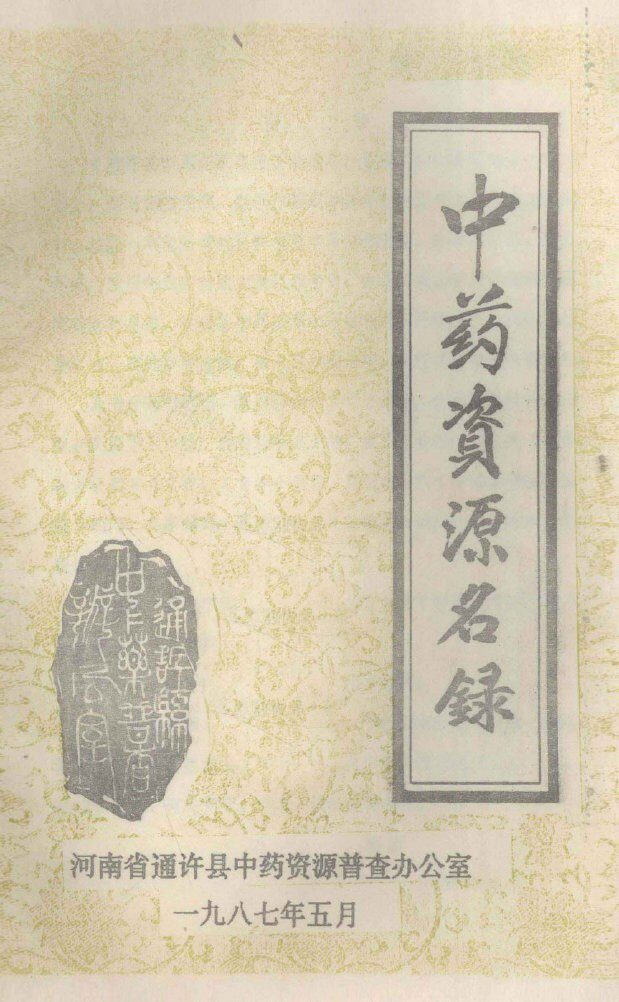 中药資源名録
通許縣
中药普查
辦公室
河南省通许县中药资源普查办公室
一九八七年五月